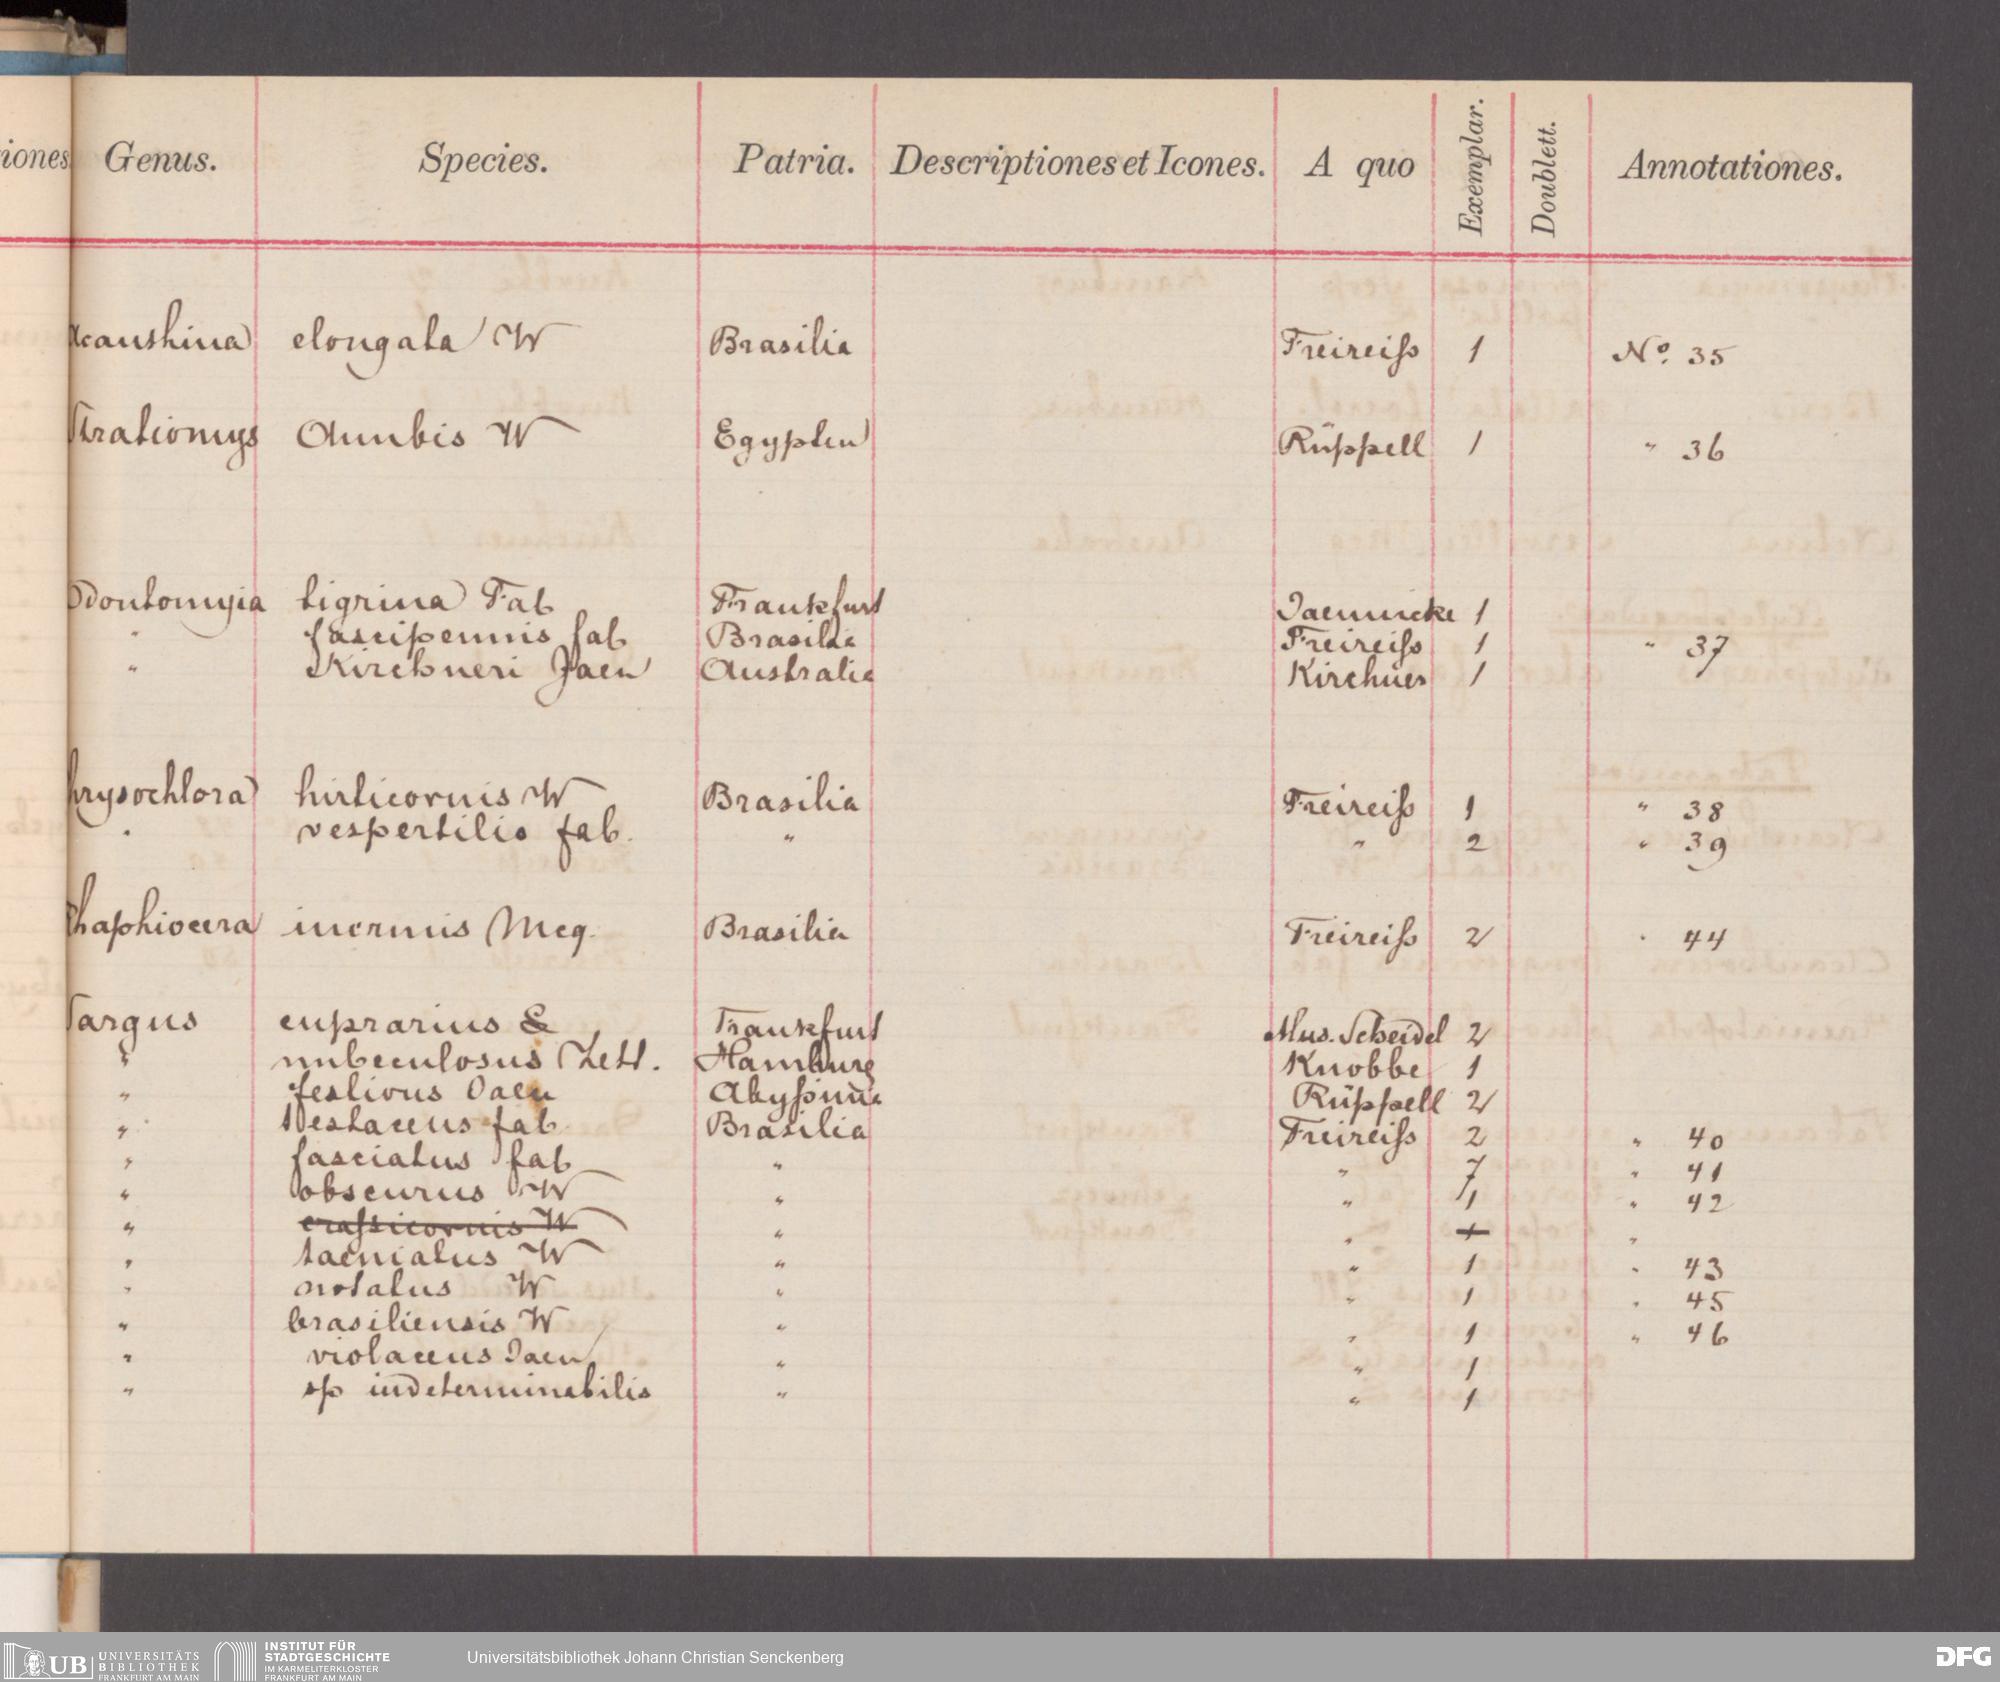 iones.
Genus. Species. Patria. Descriptiones et Icones. A quo Exemplar. Doublett. Annotationes.
Acanthina elongata W Brasilia Freireiſs 1 No. 35
Stratiomys Anubis W Egypten Rüppell 1 " 36
Odontomyia tigrina Fab Frankfurt Jaennicke 1
" fascipennis fab Brasilia Freireiſs 1 " 37
" Kirchneri Jaen Australia Kirchner 1
hrysochlora hirticornis W Brasilia Freireiſs 1 " 38
" vespertilio fab. " " 2 " 39
Rhaphiocera inermis Mcq. Brasilia Freireiſs 2 " 44
Sargus cuprarius L Frankfurt Mus. Scheidel 2
" nubeculosus Zett. Hamburg Knobbe 1
" festivus Jaen Abyſsinia Rüppell 2
" testaceus fab Brasilia Freireiſs 2 " 40
" fasciatus fab " " 7 " 41
" obscurus W " " 1 " 42
" craſsicornis W " " 1 "
" taeniatus W " " 1 " 43
" notatus W " " 1 " 45
" brasiliensis W " " 1 " 46
" violaceus Jaen " " 1
" sp indeterminabilis " " 1
UB UNIVERSITÄTS BIBLIOTHEK FRANKFURT AM MAIN
INSTITUT FÜR STADTGESCHICHTE IM KARMELITERKLOSTER FRANKFURT AM MAIN
Universitätsbibliothek Johann Christian Senckenberg
DFG